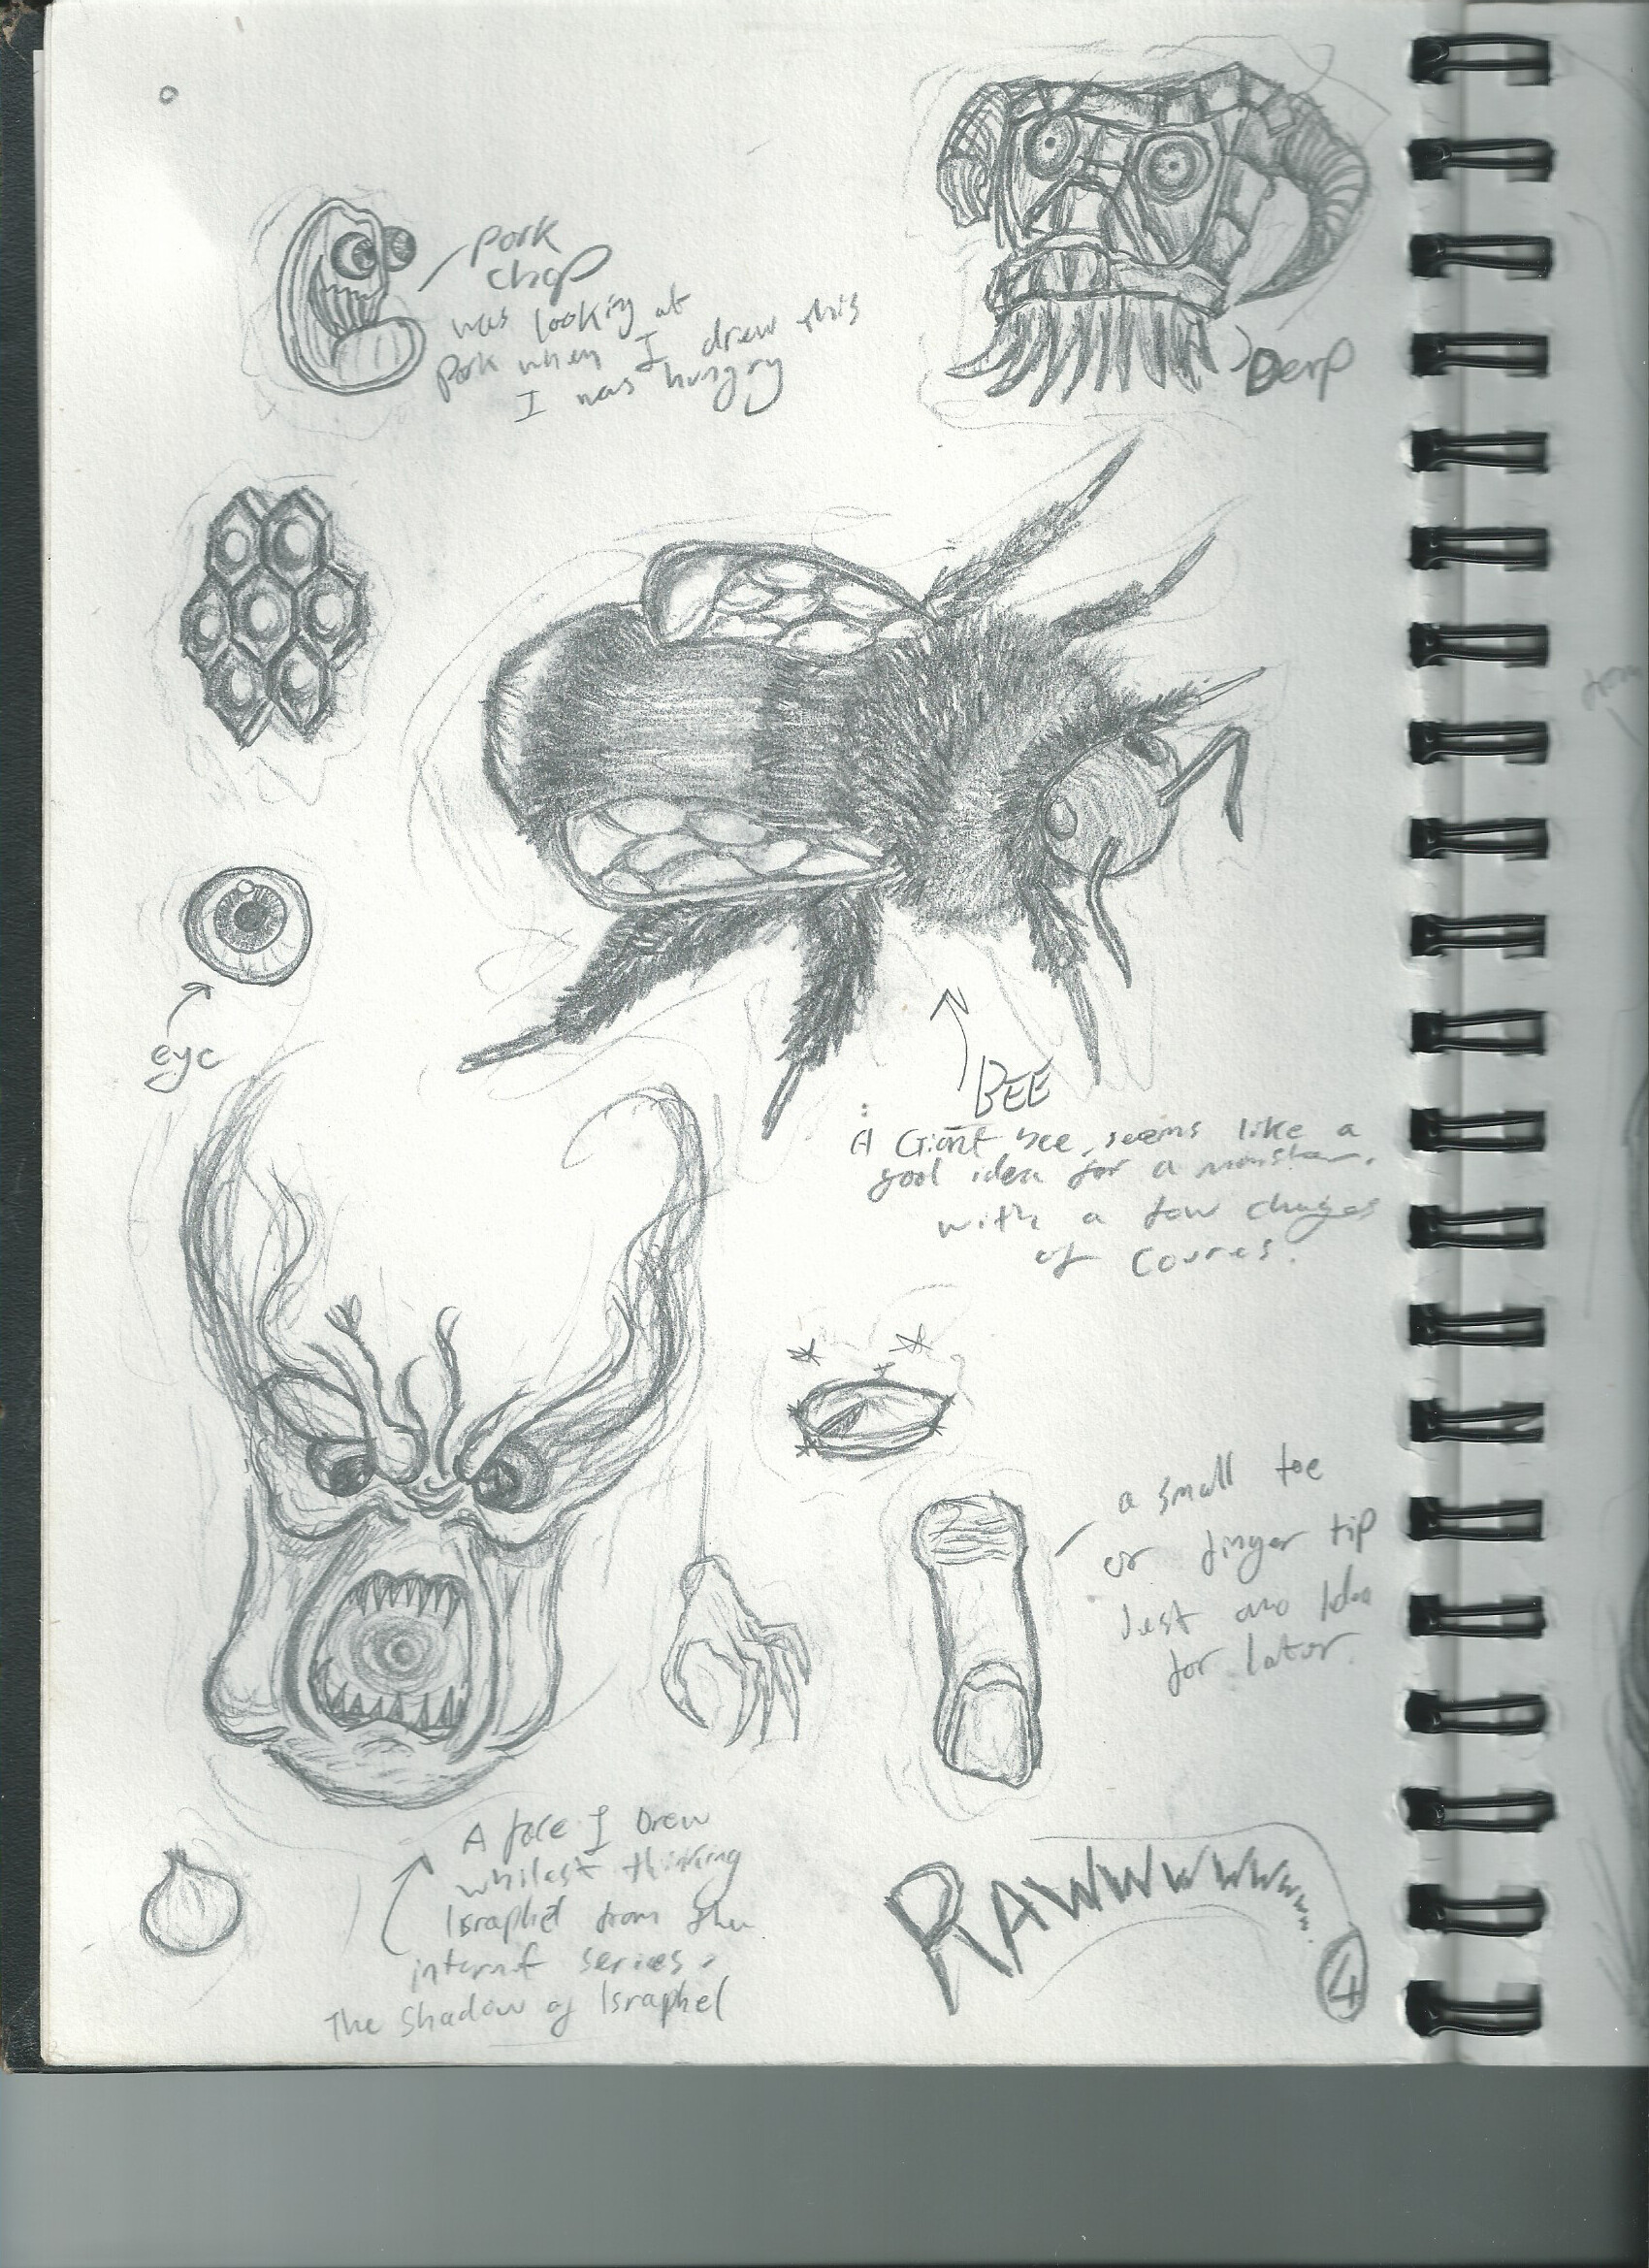 Pork
chop
was looking at
Pork when I drew this
I was hungry
Derp
eye
BEE
A Giant bee, seems like a
good idea for a monster.
with a few changes
of Coures.
a small toe
or finger tip
Jest ano Idea
for later.
A face I Drew
whilest thinking
Israphel from the
internet series.
The Shadow of Israphel
RAWWWWWWWWW...
4